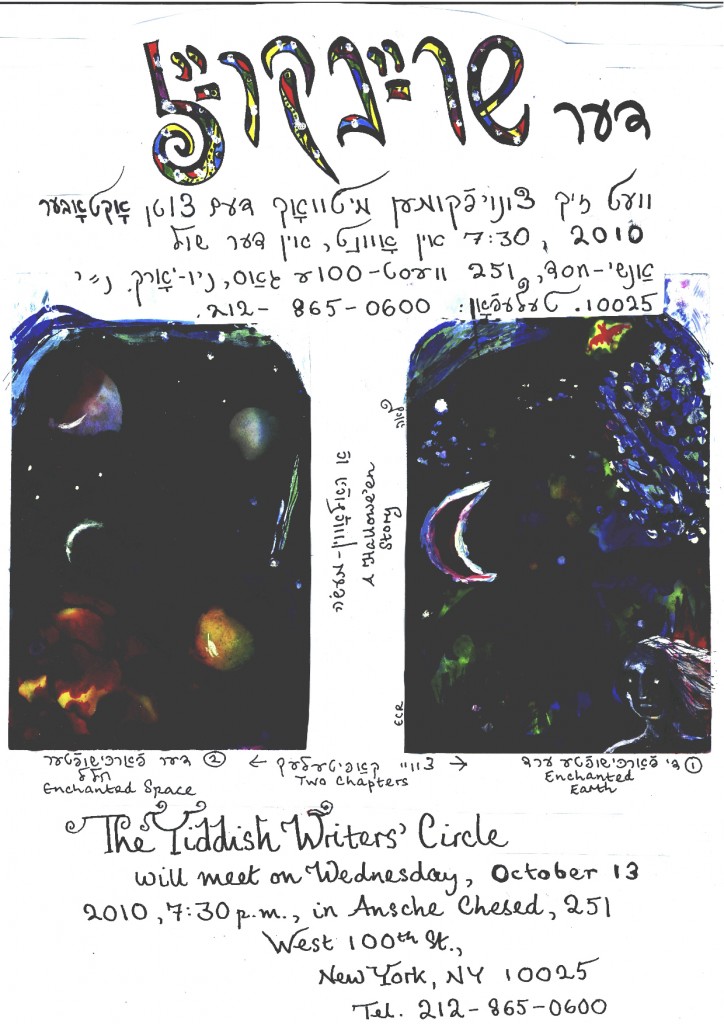 דער שרײַבקרײַז
וועט זיך צונויפֿקומען מיטוואָך דעם 13טן אָקטאָבער
2010, 7:30 אין אָוונט, אין דער שול
אַנשי-חסד, 251 וועסט-100ע גאַס, ניו-יאָרק, נ״י
10025. טעלעפֿאָן: 212-865-0600.
A Hallowe'en
Story
ECR
① די פֿאַרכּישופֿטע ערד
Enchanted
Earth
← צוויי קאַפּיטעלעך →
Two Chapters
② דער פֿאַרכּישופֿטער
חלל
Enchanted Space
The Yiddish Writers' Circle
will meet on Wednesday, October 13
2010, 7:30 p.m., in Ansche Chesed, 251
West 100th St.,
New York, NY 10025
Tel. 212-865-0600